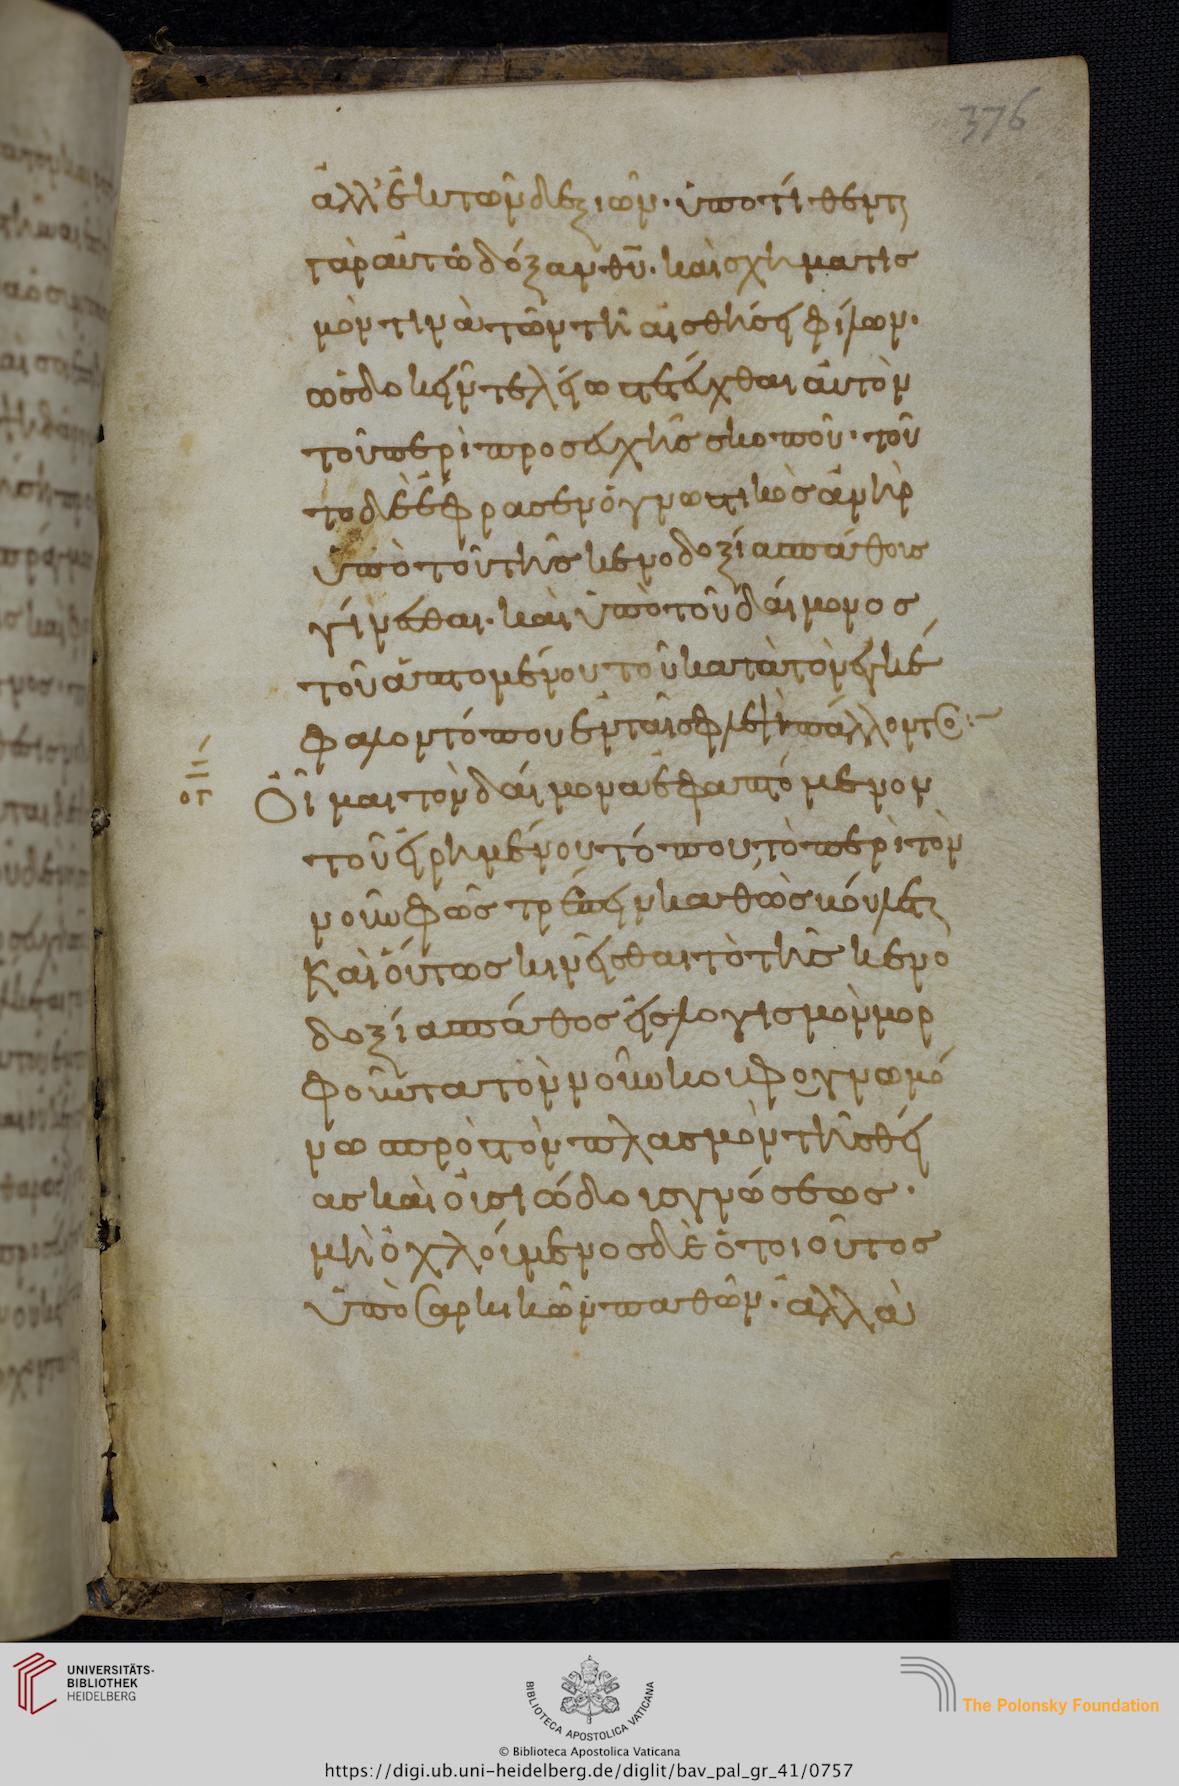 376
ἀλλ' ἐκ τῶν δεξιῶν· ὑποτίθενται
γὰρ αὐτῶ δόξαν θυ· καὶ σχηματισ
μόν τινα τῶν τῆ αἰσθήσει φίλων·
ὡς δοκεῖν τελείως τετεύχθαι αὐτὸν
τοῦ περὶ προσευχῆς σκοποῦ· τοῦ
το δὲ ἔφρασεν ὁ γνωστικὸς ἀνὴρ
ὑπὸ τοῦ τῆς κενοδοξίας πάθους
γίνεσθαι· καὶ ὑπὸ τοῦ δαίμονος
τοῦ ἁπτομένου τοῦ κατὰ τὸν ἐγκέ
φαλον τόπου
Οἶμαι τὸν δαίμονα ἐφαπτόμενον
τοῦ εἰρημένου τόπου, τὸ περὶ τὸν
νοῦν φῶς τρέπειν καθὼς βούλεται
Καὶ οὕτως κινεῖσθαι τὸ τῆς κενο
δοξίας πάθος εἰς λογισμὸν μορ
φοῦντα τὸν νοῦν κουφογνωμό
νως πρὸς τὸν πλασμὸν τῆς θεί
ας καὶ οὐσιώδους γνώσεως·
μὴ ὀχλούμενος δὲ ὁ τοιοῦτος
ὑπὸ σαρκικῶν παθῶν· ἀλλὰ
UNIVERSITÄTS-
BIBLIOTHEK
HEIDELBERG
BIBLIOTECA APOSTOLICA VATICANA
The Polonsky Foundation
© Biblioteca Apostolica Vaticana
https://digi.ub.uni-heidelberg.de/diglit/bav_pal_gr_41/0757